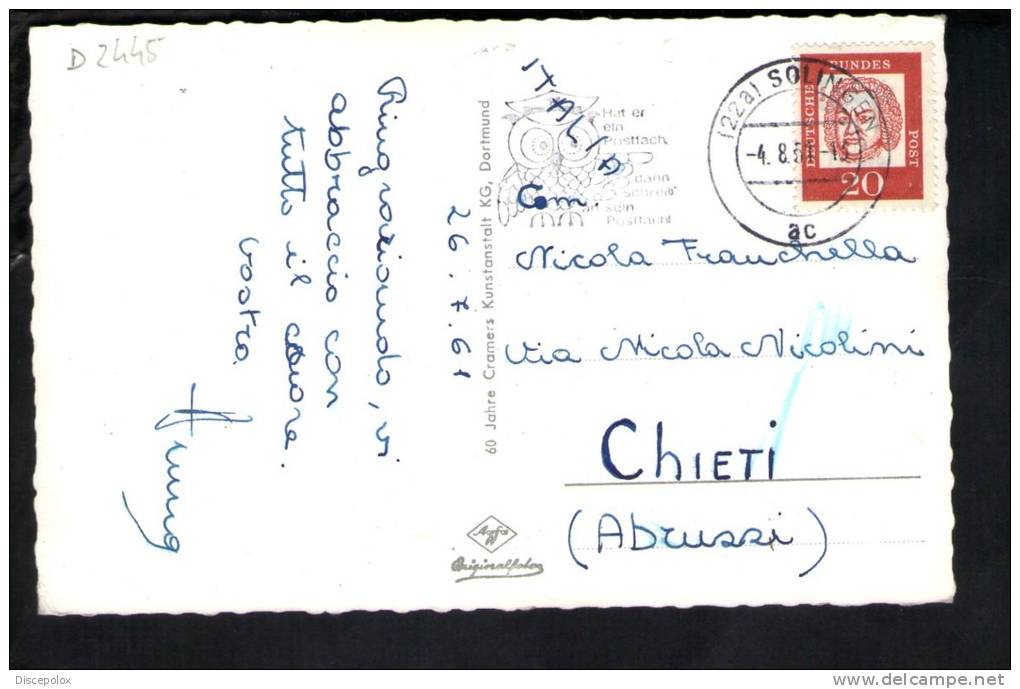 D 2445
Ringraziando, vi
abbraccio con
tutto il cuore.
Vostro.
26.7.61
60 Jahre Cramers Kunstanstalt KG, Dortmund
Agfa
Originalfoto
ITALIA
Hat er
ein
Postfach,
dann
schreib'
sein
Postfach!
(22a) SOLINGEN
-4.8.61-15
ac
DEUTSCHE BUNDESPOST
20
Com.
Nicola Franchella
Via Nicola Nicolini
CHIETI
(Abruzzi)
Discepolox
www.delcampe.net